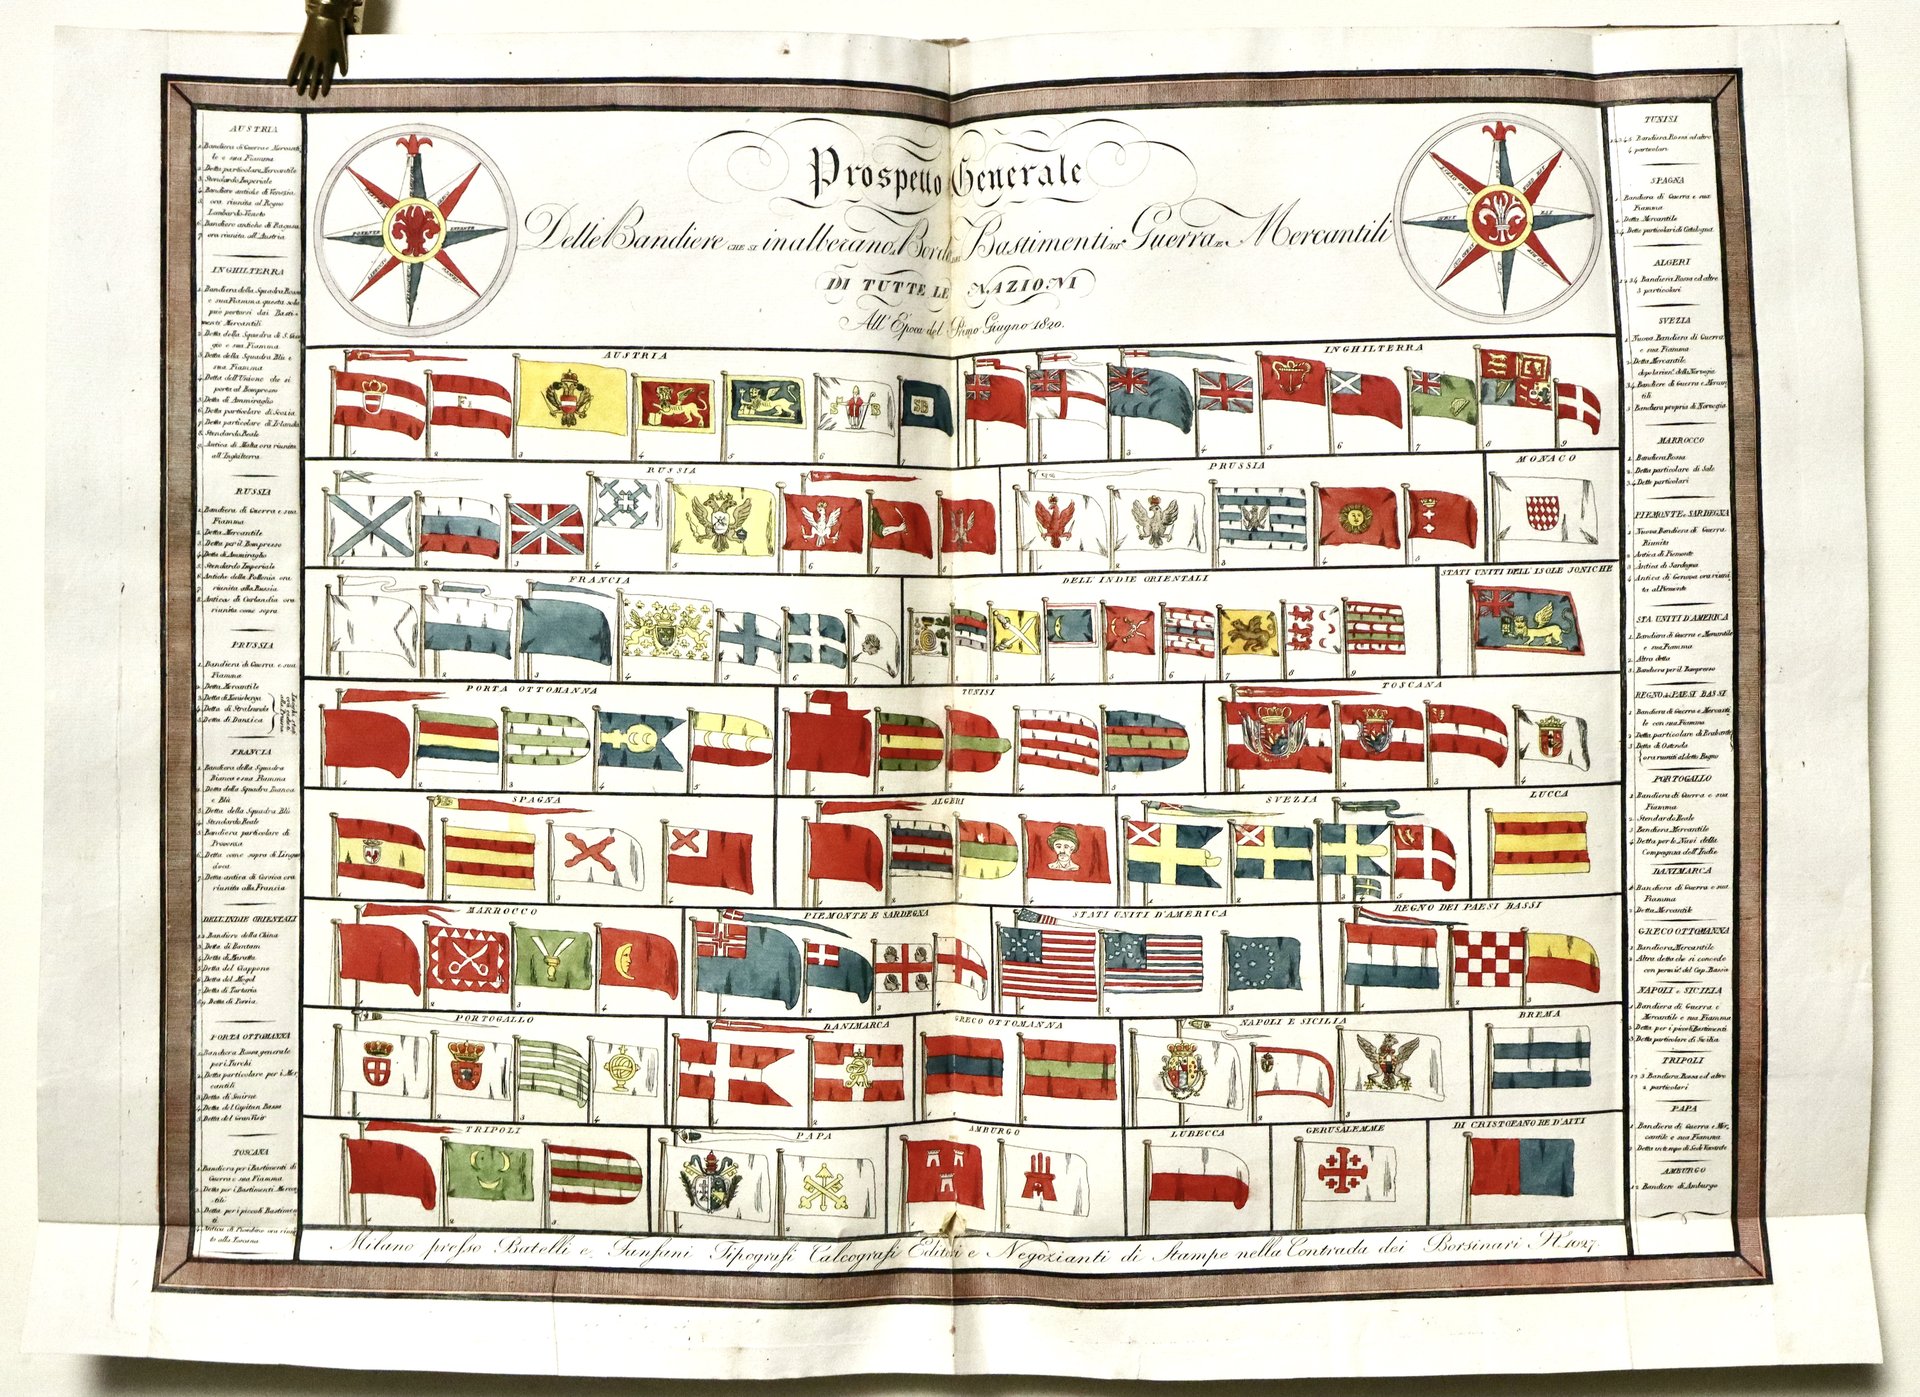 Prospetto Generale
Delle Bandiere CHE SI inalberano a Bordo DEI Bastimenti DI Guerra E Mercantili
DI TUTTE LE NAZIONI
All' Epoca del Primo Giugno 1820.
AUSTRIA
1. Bandiera di Guerra e Mercanti-
le e sua Fiamma
2. Detta particolare Mercantile
3. Stendardo Imperiale
4. Bandiere antiche di Venezia
5. ora riunita al Regno
Lombardo-Veneto
6. Bandiere antiche di Ragusa
7. ora riunita all'Austria
INGHILTERRA
1. Bandiera della Squadra Rossa
e sua Fiamma questa sola
può portarsi dai Basti-
menti Mercantili
2. Detta della Squadra di S. Gior-
gio e sua Fiamma
3. Detta della Squadra Blù e
sua Fiamma
4. Detta dell'Unione che si
porta al Bompresso
5. Detta di Ammiraglio
6. Detta particolare di Scozia
7. Detta particolare d'Irlanda
8. Stendardo Reale
9. Antica di Malta ora riunita
all'Inghilterra
RUSSIA
1. Bandiera di Guerra e sua
Fiamma
2. Detta Mercantile
3. Detta per il Bompresso
4. Detta di Ammiraglio
5. Stendardo Imperiale
6. Antiche della Pollonia ora
7. riunita alla Russia
8. Antica di Curlandia ora
riunita come sopra
PRUSSIA
1. Bandiera di Guerra e sua
Fiamma
2. Detta Mercantile
3. Detta di Konisberga
4. Detta di Stralsunda
5. Detta di Danzica
FRANCIA
1. Bandiera della Squadra
Bianca e sua Fiamma
2. Detta della Squadra Bianca
e Blù
3. Detta della Squadra Blù
4. Stendardo Reale
5. Bandiera particolare di
Provenza
6. Detta come sopra di Lingua-
doca
7. Detta antica di Corsica ora
riunita alla Francia
DELL'INDIE ORIENTALI
1.2 Bandiere della China
3. Detta di Bantam
4. Detta di Maratta
5. Detta del Giappone
6. Detta del Mogol
7. Detta di Tartaria
8.9 Dette di Persia
PORTA OTTOMANNA
1. Bandiera Rossa generale
per i Turchi
2. Detta particolare per i Mer-
cantili
3. Detta di Smirne
4. Detta del Capitan Bassà
5. Detta del Gran Visir
TOSCANA
1. Bandiera per i Bastimenti di
Guerra e sua Fiamma
2. Detta per i Bastimenti Merca-
tili
3. Detta per i piccoli Bastimen-
ti
4. Antica di Piombino ora riuni-
ta alla Toscana
AUSTRIA
1 2 3 4 5 6 7
INGHILTERRA
1 2 3 4 5 6 7 8 9
RUSSIA
1 2 3 4 5 6 7 8
PRUSSIA
1 2 3 4 5
MONACO
FRANCIA
DELL'INDIE ORIENTALI
STATI UNITI DELL'ISOLE JONICHE
PORTA OTTOMANNA
1 2 3 4 5
TUNISI
TOSCANA
1 2 3 4
SPAGNA
1 2 3 4
ALGERI
SVEZIA
LUCCA
MARROCCO
PIEMONTE E SARDEGNA
STATI UNITI D'AMERICA
REGNO DEI PAESI BASSI
PORTOGALLO
DANIMARCA
GRECO OTTOMANNA
NAPOLI E SICILIA
BREMA
TRIPOLI
PAPA
AMBURGO
LUBECCA
GERUSALEMME
DI CRISTOFANO RE D'AITI
TUNISI
1.2.3.4.5 Bandiera Rossa ed altre
4 particolari
SPAGNA
1. Bandiera di Guerra e sua
Fiamma
2. Detta Mercantile
3.4 Dette particolari di Catalogna
ALGERI
1.2.3.4 Bandiera Rossa ed altre
3 particolari
SVEZIA
1. Nuova Bandiera di Guerra
e sua Fiamma
2. Detta Mercantile
3.4 Bandiere di Guerra e Mercan-
tili
5 Bandiera propria di Norvegia
MARROCCO
1. Bandiera Rossa
2. Detta particolare di Salè
3.4 Dette particolari
PIEMONTE e SARDEGNA
1. Nuova Bandiera di Guerra
Riunita
2. Antica di Piemonte
3. Antica di Sardegna
4. Antica di Genova ora riuni-
ta al Piemonte
STA. UNITI D'AMERICA
1. Bandiera di Guerra e Mercantile
e sua Fiamma
2. Altra detta
3. Bandiera per il Bompresso
REGNO dei PAESI BASSI
1. Bandiera di Guerra e Mercanti-
le con sua Fiamma
2. Detta particolare di Brabante
3 Detta di Ostenda
ora riuniti al detto Regno
PORTOGALLO
1. Bandiera di Guerra e sua
Fiamma
2. Stendardo Reale
3. Bandiera Mercantile
4. Detta per le Navi della
Compagnia dell'Indie
DANIMARCA
1. Bandiera di Guerra e sua
Fiamma
2. Detta Mercantile
GRECO OTTOMANNA
1. Bandiera Mercantile
2. Altra detta che si concede
con permis.e del Cap. Bassà
NAPOLI e SICILIA
1. Bandiera di Guerra e
Mercantile e sua Fiamma
2. Detta per i piccoli Bastimenti
3. Detta particolare di Sicilia
TRIPOLI
1.2.3 Bandiera Rossa ed altre
2 particolari
PAPA
1. Bandiera di Guerra e Mer-
cantile e sua Fiamma
2. Detta in tempo di Sede Vacante
AMBURGO
1.2 Bandiere di Amburgo
Milano presso Batelli e Fanfani Tipografi Calcografi Editori e Negozianti di Stampe nella Contrada dei Borsinari N. 1027.